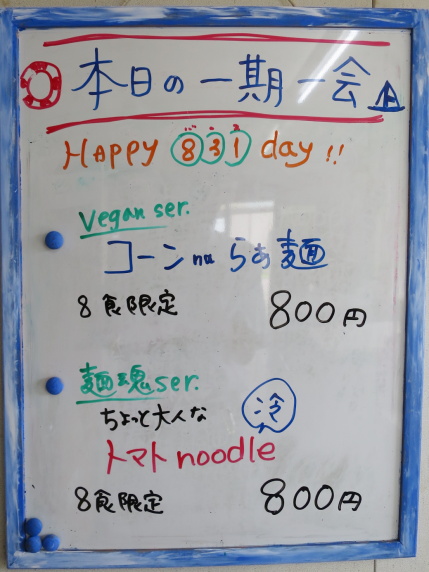 本日の一期一会
Happy 831 day!!
Vegan ser.
コーン na らぁ麺
8食限定 800円
麺魂ser.
ちょっと大人な 冷
トマト noodle
8食限定 800円